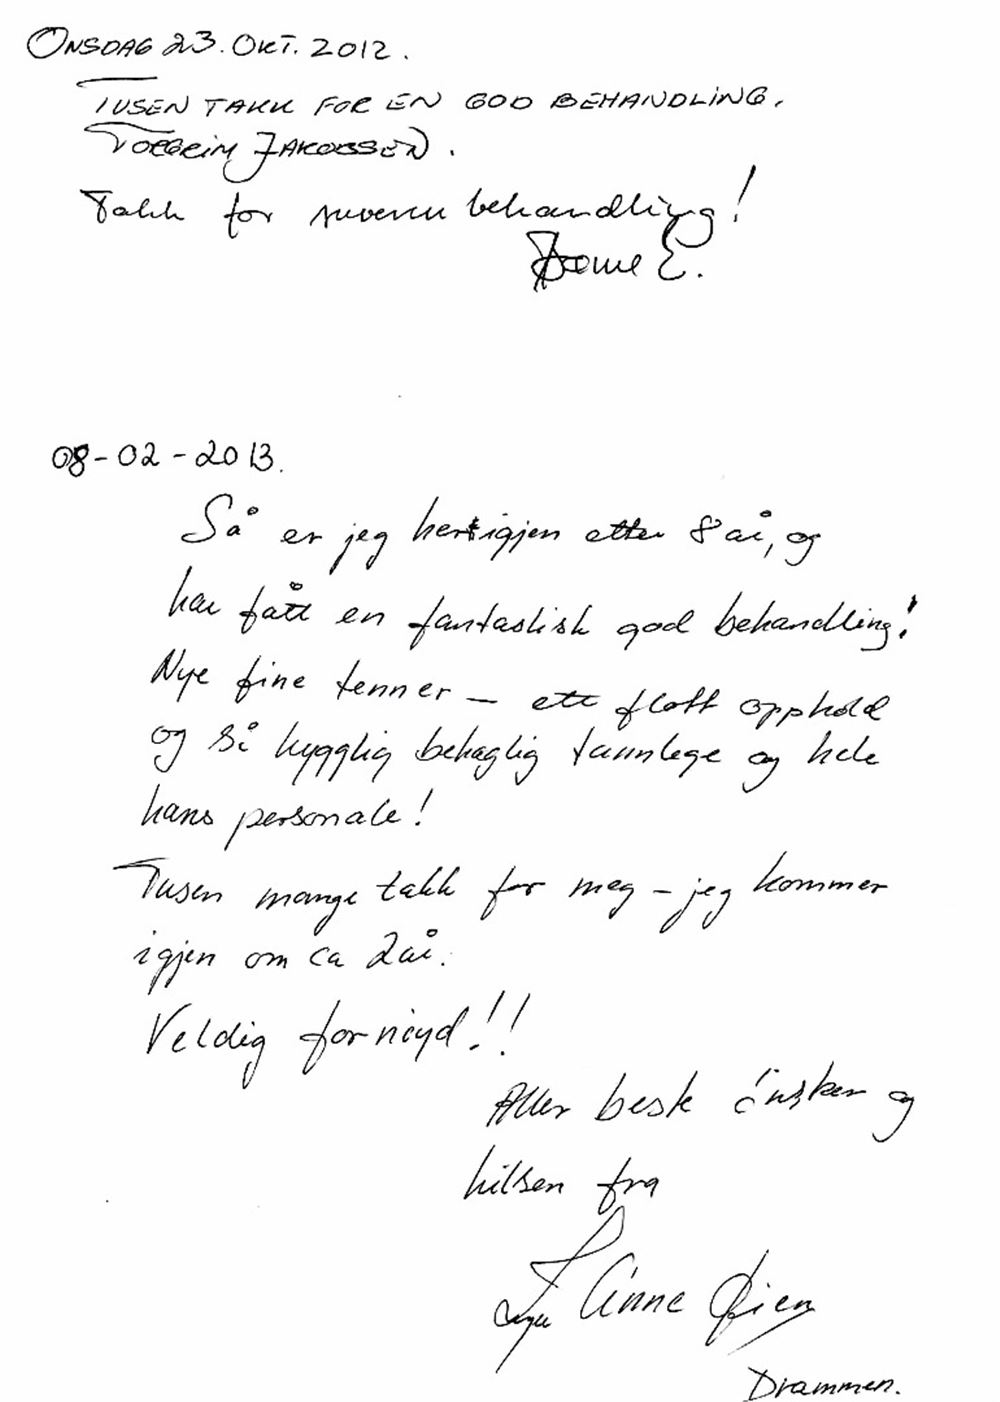 ONSDAG 23. OKT. 2012.
TUSEN TAKK FOR EN GOD BEHANDLING.
TORGRIM JAKOBSEN.
Takk for suveren behandling!
E.
08-02-2013.
Så er jeg her igjen etter 8 år, og
har fått en fantastisk god behandling!
Nye fine tenner – ett flott opphold
og så hygglig behaglig tannlege og hele
hans personale!
Tusen mange takk for meg – jeg kommer
igjen om ca 2 år.
Veldig fornöyd!!
Aller beste önsker og
hilsen fra
Anne Øien
Drammen.